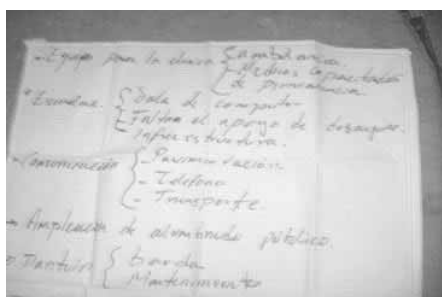 - Equipo para la clínica { Ambulancia.
- Médicos capacitados
de permanencia.
* Escuelas. { Sala de computo.
Falta el apoyo de desayunos.
Infraestructura.
- Comunicación { Pavimentación.
- Teléfono
- Transporte.
- Ampliación de alumbrado público.
Panteón { barda
Mantenimiento